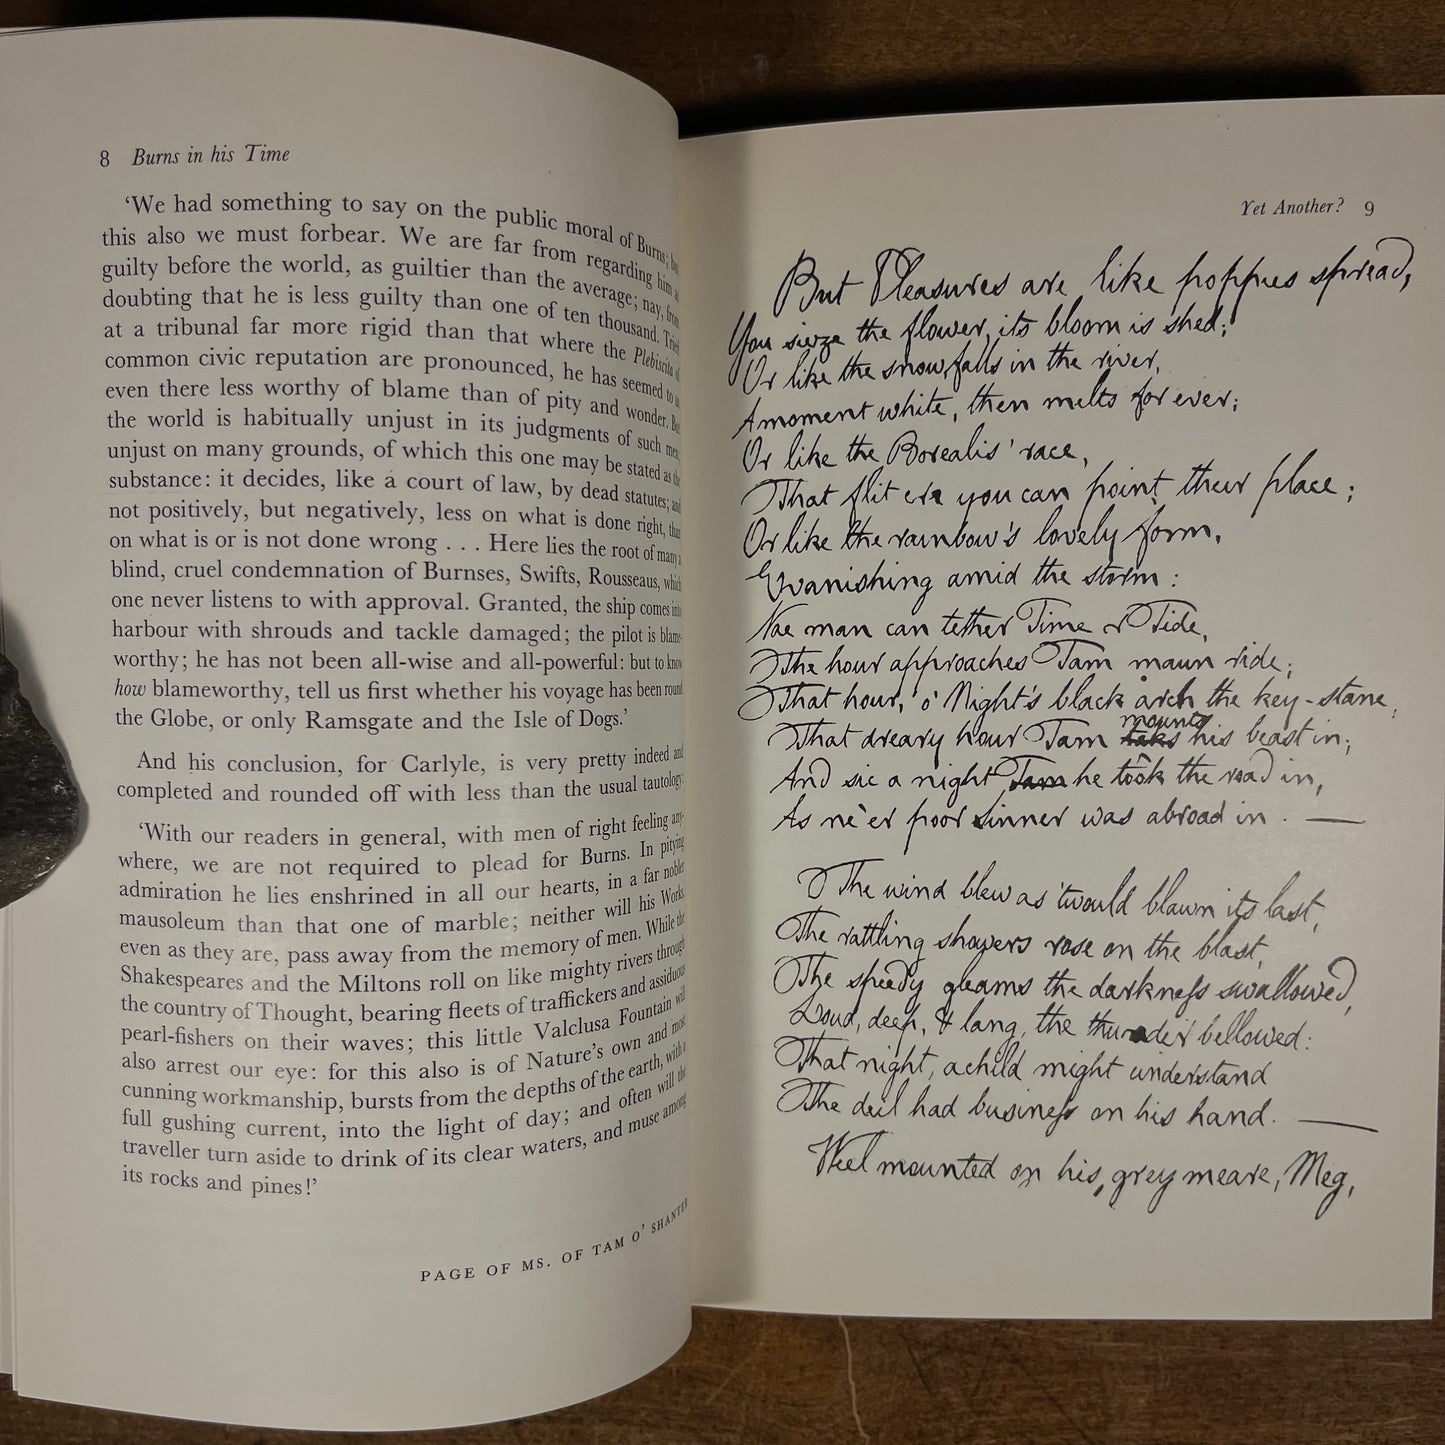 8 Burns in his Time
‘We had something to say on the public moral of Burns; but
this also we must forbear. We are far from regarding him as
guilty before the world, as guiltier than the average; nay, from
doubting that he is less guilty than one of ten thousand. Tried
at a tribunal far more rigid than that where the Plebiscita of
common civic reputation are pronounced, he has seemed to us
even there less worthy of blame than of pity and wonder. But
the world is habitually unjust in its judgments of such men;
unjust on many grounds, of which this one may be stated as the
substance: it decides, like a court of law, by dead statutes; and
not positively, but negatively, less on what is done right, than
on what is or is not done wrong . . . Here lies the root of many a
blind, cruel condemnation of Burnses, Swifts, Rousseaus, which
one never listens to with approval. Granted, the ship comes into
harbour with shrouds and tackle damaged; the pilot is blame-
worthy; he has not been all-wise and all-powerful: but to know
how blameworthy, tell us first whether his voyage has been round
the Globe, or only Ramsgate and the Isle of Dogs.’
And his conclusion, for Carlyle, is very pretty indeed and
completed and rounded off with less than the usual tautology:
‘With our readers in general, with men of right feeling any-
where, we are not required to plead for Burns. In pitying
admiration he lies enshrined in all our hearts, in a far nobler
mausoleum than that one of marble; neither will his Works,
even as they are, pass away from the memory of men. While the
Shakespeares and the Miltons roll on like mighty rivers through
the country of Thought, bearing fleets of traffickers and assiduous
pearl-fishers on their waves; this little Valclusa Fountain will
also arrest our eye: for this also is of Nature’s own and most
cunning workmanship, bursts from the depths of the earth, with a
full gushing current, into the light of day; and often will the
traveller turn aside to drink of its clear waters, and muse among
its rocks and pines!’
PAGE OF MS. OF TAM O’ SHANTER
Yet Another? 9
But Pleasures are like poppies spread,
You sieze the flower, its bloom is shed;
Or like the snow falls in the river,
A moment white, then melts for ever;
Or like the Borealis' race,
That flit ere you can point their place;
Or like the rainbow's lovely form,
Evanishing amid the storm:
Nae man can tether Time & Tide,
The hour approaches Tam maun ride;
That hour, o' Night's black arch the key-stane,
That dreary hour Tam taks mounts his beast in;
And sic a night Tam he took the road in,
As ne'er poor sinner was abroad in. —
The wind blew as 'twould blawn its last,
The rattling showers rose on the blast,
The speedy gleams the darkness swallowed,
Loud, deep, & lang, the thunder bellowed:
That night, a child might understand
The deil had business on his hand. —
Weel mounted on his grey meare, Meg,